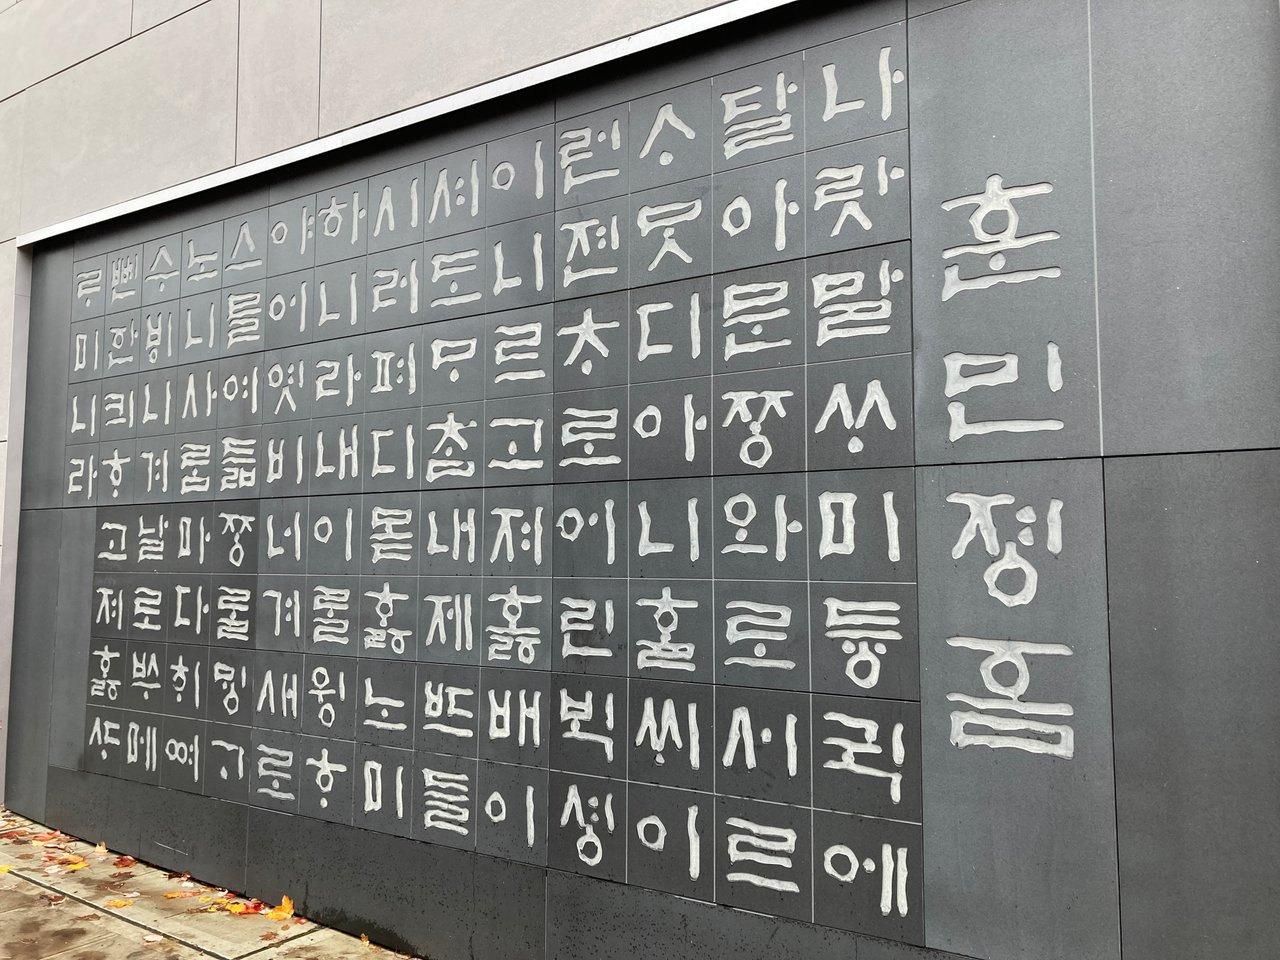 훈민졍ᅙᅳᆷ
나랏말ᄊᆞ미듕귁에
달아문ᄍᆞᆼ와로서르
ᄉᆞᄆᆞᆺ디아니ᄒᆞᆯᄊᆡ이
런젼ᄎᆞ로어린ᄇᆡᆨ셩
이니르고져ᄒᆞᇙ배이
셔도ᄆᆞᄎᆞᆷ내제ᄠᅳ들
시러펴디몯ᄒᆞᇙ노미
하니라내이ᄅᆞᆯ윙ᄒᆞ
야어엿비너겨새로
스믈여듧ᄍᆞᆼᄅᆞᆯᄆᆡᇰᄀᆞ
노니사ᄅᆞᆷ마다ᄒᆡᅇᅧ
수ᄫᅵ니겨날로ᄡᅮ메
뼌한킈ᄒᆞ고져ᄒᆞᇙᄯᆞ
ᄅᆞ미니라